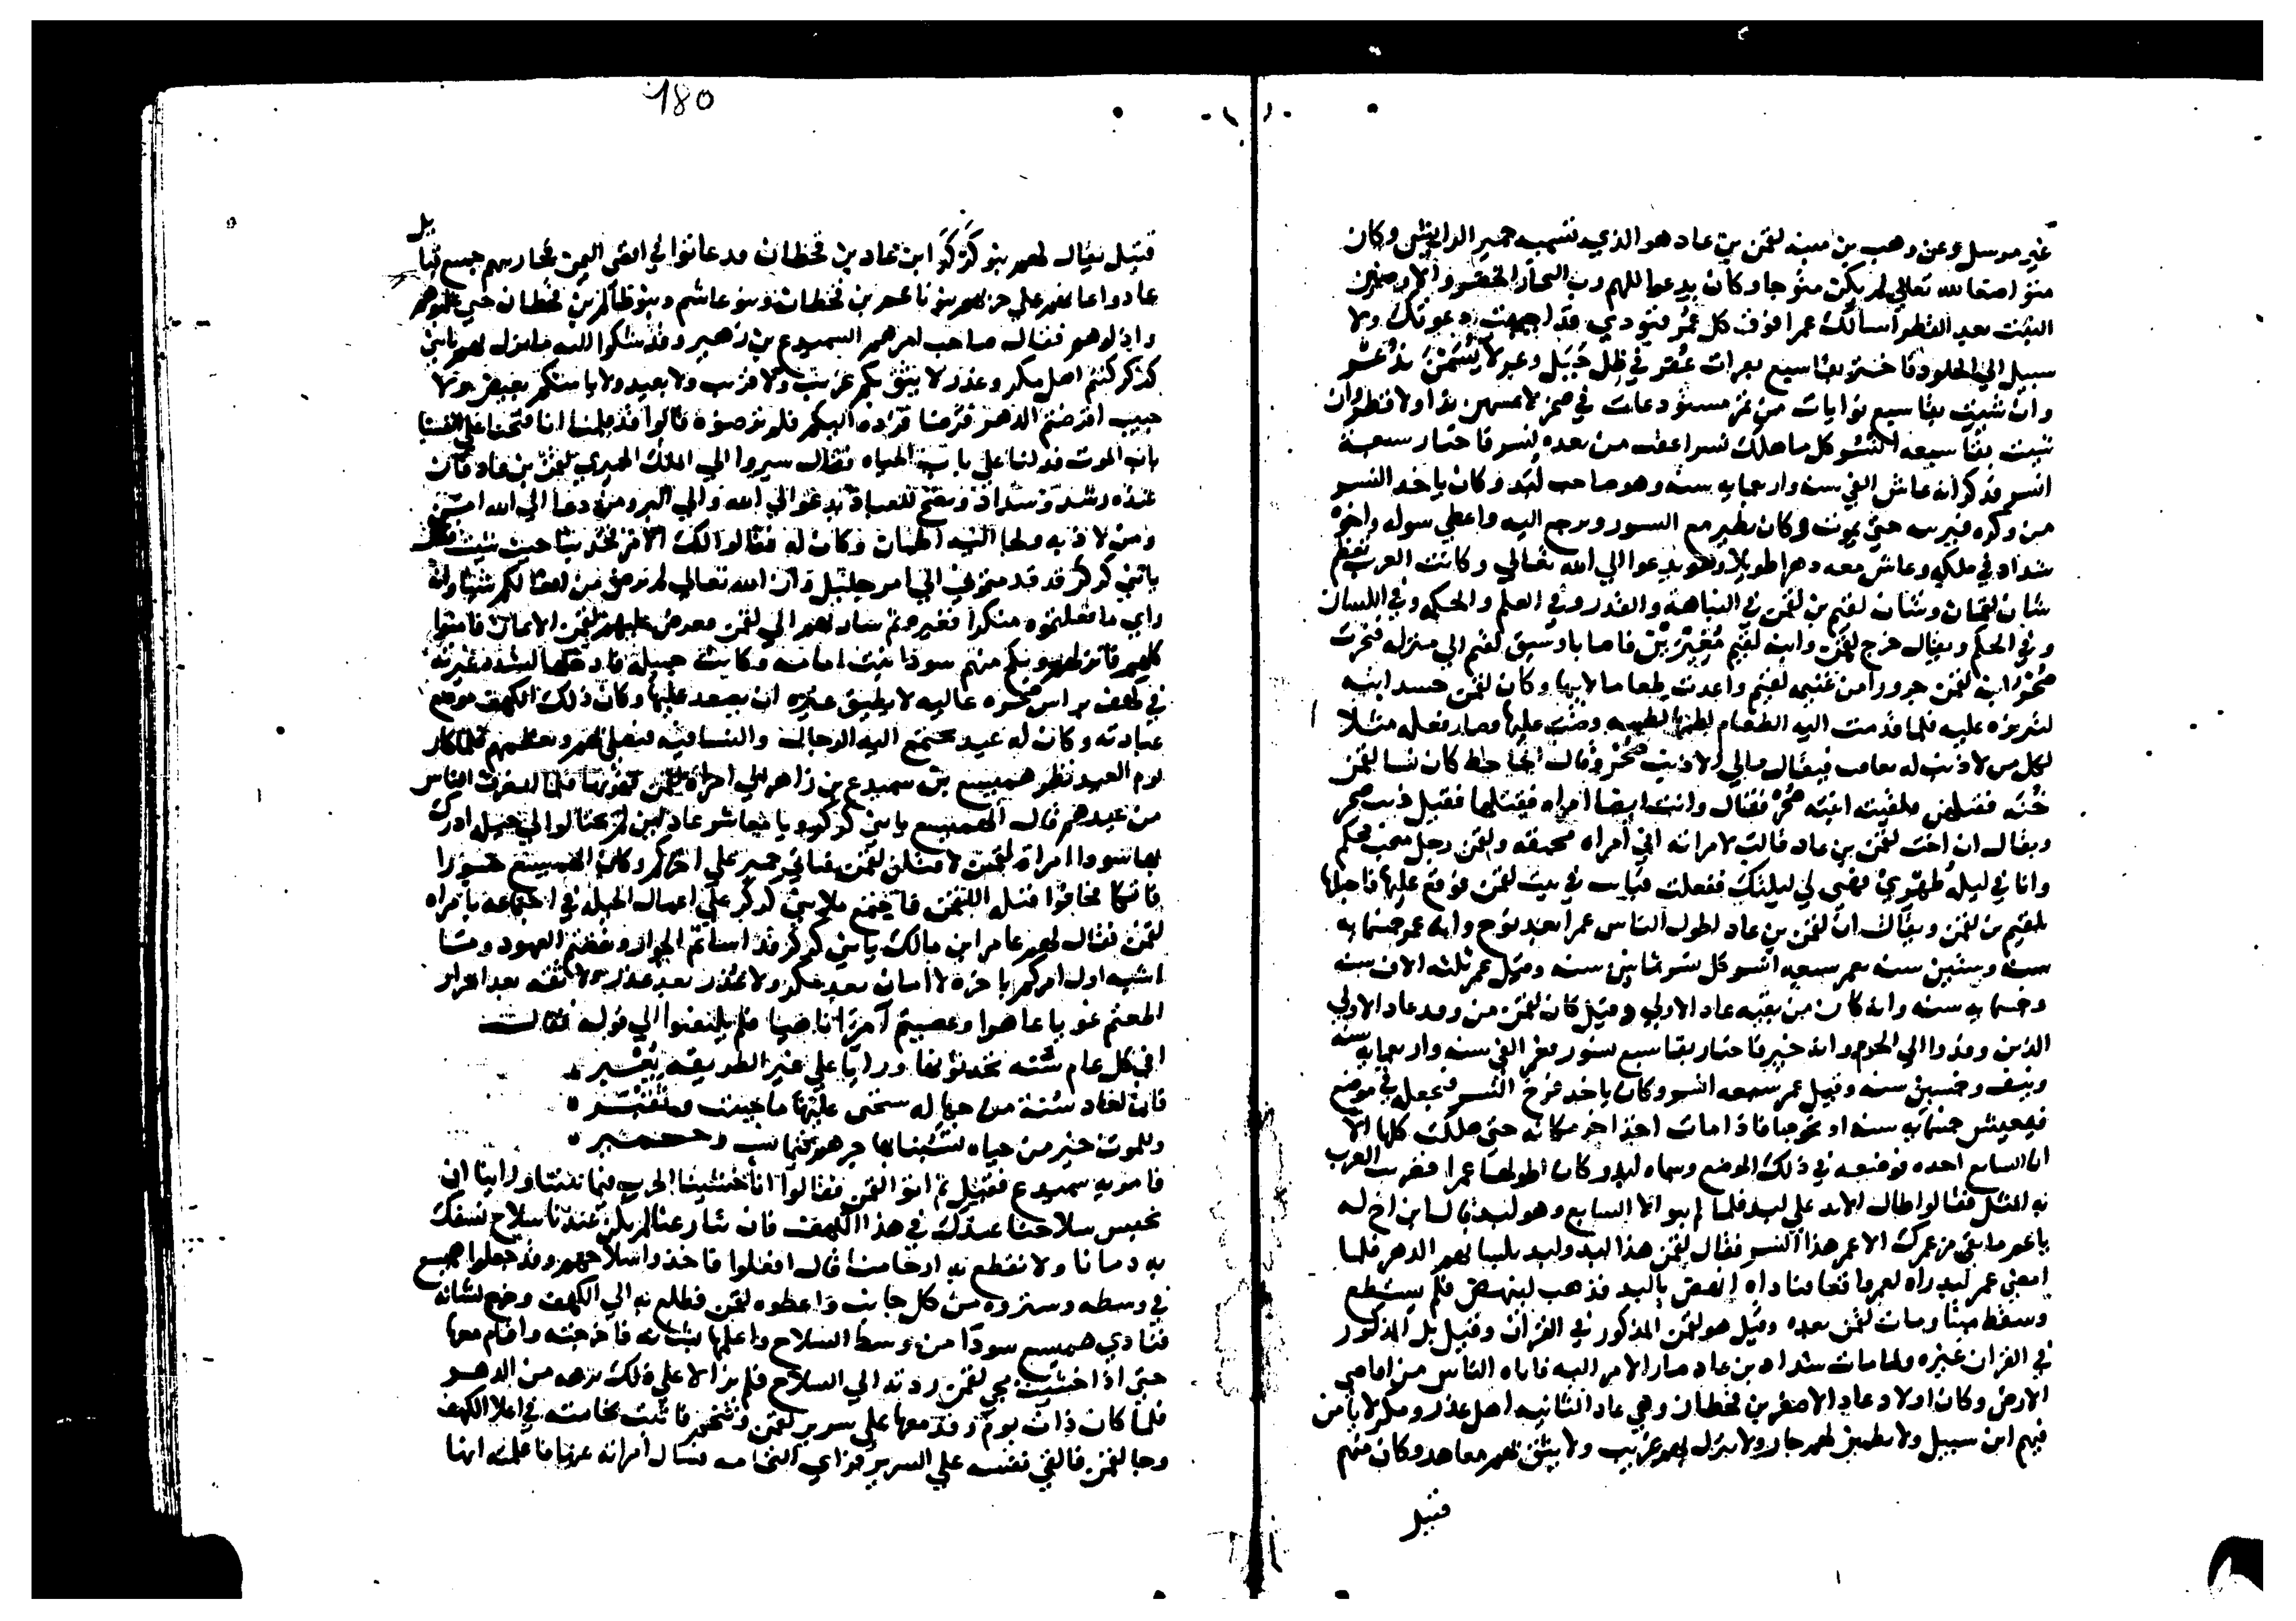 غير مرسل وعن وهب بن منبه لقمن بن عاد هو الذي تسميه حمير الرايش وكان
متواضعا لله تعالي لم يكن متوجا وكان يدعو اللهم رب البحار الخضر والارضين
النبت بعد القطر اسالك عمرا فوق كل عمر فنودي قد اجيبت دعوتك ولا
سبيل الي الخلود فاختر بقا سبع بعرات عفر في ظل جبل وعر لا
وان شيت بقا سبع نوايات من تمر مستودعات في صخر لا يمسهن ندا ولا قطر وان
شيت بقا سبعه انسر كل ما هلك نسر اعقب من بعده نسر فاختار سبعة
انسر فذكر انه عاش الفي سنه واربعمايه سنه وهو صاحب لبد وكان ياخد النسر
من وكره فيربيه حتي يموت وكان يطير مع النسور ويرجع اليه واعطي سوله واخوه
شداد في ملكه وعاش معه دهرا طويلا وهو يدعو الي الله تعالي وكانت العرب تعظم
شان لقمان وشان لقيم بن لقمن في النباهة والقدر وفي العلم والحكم وفي اللسان
وفي الحلم ويقال خرج لقمن وابنه لقيم مغيرين فاصابا وسبق لقيم الي منزله فنحرت
صحر ابنة لقمن جزورا من غنيمه لقيم واعدت طعاما لابيها وكان لقمن حسد ابنه
لتبريزه عليه فلما قدمت اليه الطعام لطمها لطمه قضت عليها وصار فعله مثلا
لكل من لا ذنب له يعاقب فيقال مالي الا ذنب صحر وقال الجاحظ كان نسا لقمن
خنه فقتلهن فلقيته ابنته صحر فقال وانت ايضا امراه فقتلها فقيل ذنب صحر
ويقال ان اخت لقمن بن عاد قالت لامراته اني امراه محمقه ولقمن رجل منجب محكم
وانا في ليلة طهوري فهبي لي ليلتك ففعلت فباتت في بيت لقمن فوقع عليها فاحبلها
بلقيم بن لقمن ويقال ان لقمن بن عاد اطول الناس عمرا بعد نوح وانه عمر خمسمايه
سنه وستين سنه بعمر سبعه انسر كل نسر ثمانين سنه وقيل عمر ثلثه الاف سنه
وخسمايه سنه وانه كان من بقيه عاد الاولي وقيل كان لقمن من وفد عاد الاولي
الذين وفدوا الي الحرم وانه خير فاختار بقا سبع نسور فعمر الفي سنه واربعمايه سنه
ونيف وخمسين سنه وقيل عمر سبعه انسر وكان ياخد فرخ النسر فيجعله في موضع
فيعيش خمسمايه سنه او نحوها فاذا مات اخذ اخر مكانه حتي هلكت كلها الا
السابع اخده فوضعه في ذلك الموضع وسماه لبد وكان اطولها عمرا فضربت العرب
به المثل فقالوا طال الابد علي لبد فلما لم يبق الا السابع وهو لبد قال ابن اخ له
يا عم ما بقي من عمرك الا عمر هذا النسر فقال لقمن هذا لبد ولبد بلسانهم الدهر فلما
انقضي عمر لبد راه لقمن واقعا فناداه انهض يا لبد فذهب لينهض فلم يستطع
وسقط ميتا ومات لقمن بعده وقيل هو لقمن المذكور في القران وقيل بل المذكور
في القران غيره ولما مات شداد بن عاد صار الامر اليه فاتاه الناس من اقاصي
الارض وكان اولاد عاد الاصغر بن قحطان وهي عاد الثانيه اهل غدر ومكر لا يامن
فيهم ابن سبيل ولا يطمين لهم جار ولا ينزل بهم غريب ولا يثق بهم معاهد وكان منهم
قبيل
180
قبيل يقال لهم بنو كركر ابن عاد بن قحطان قد عاثوا في اقصي اليمن فحاربهم جميع قبايل
عاد واعانهم علي حربهم بنو غنم بن قحطان وبنو غاشم وبنو ظالم بن قحطان حتي غلبوهم
واذلوهم فقال صاحب امرهم السميدع بن زهير وقد شكوا اليه ما نزل بهم يا بني
كركر كنتم اهل مكر وغدر لا يثق بكم غريب ولا قريب ولا بعيد ولا يامنكم بغيض ولا
حبيب اقرضتم الدهر قرضا فرده اليكم فلم ترضوه قالوا قد علمنا انا فتحنا علي انفسنا
باب الموت فدلنا علي باب الحياه فقال سيروا الي الملك الحميري لقمن بن عاد فان
عنده رشد وسداد ونصح للعباد يدعو الي الله والي البر ومن دعا الي الله امن
ومن لاذ به ولجا اليه اطمان وكان له فقالوا لك الامر فخذ بنا حيث شيت فقال
يا بني كركر قد قد منحوني الي امر جليل وان الله تعالي لم يرض من افعالكم شيا وان
راي ما فعلتموه منكرا فغيروه ثم سار بهم الي لقمن فعرض عليهم لقمن الايمان فامنوا
كلهم فانزلهم ونكح منهم سودا بنت امامه وكانت جميله فادخلها لشده غيرته
في كهف براس صخره عاليه لا يطيق غيره ان يصعد عليها وكان ذلك الكهف موضع
عبادته وكان له عيد يجتمع اليه الرجال والنسا فيه فيصلي بهم ويعظهم فلما كان
يوم العيد نظر هميسع بن سميدع بن زاهر الي امراة لقمن فهويها فلما انصرف الناس
من عيدهم قال الهميسع يا بني كركر ويا معاشر عاد لين لم تحتالوا لي حيله ادرك
بها سودا امراة لقمن لاقتلن لقمن فتاتي حمير علي اخركم وكان الهميسع جسورا
فاتكا فخافوا قتله للقمن فاجتمع ملا بني كركر علي اعمال الحيله في اجتماعه بامراه
لقمن فقال لهم عامر ابن مالك يا بني كركر قد اساتم الجوار ونقضتم العهود وما
اشبه اول امركم باخره لا امان بعد مكر ولا عذر بعد غدر ولا ثقه بعد اصرار
اطعتم غويا عاهرا وعصيتم آمرا ناصحا فلم يلتفتوا الي قوله فقالت
افي كل عام سنه تحدثونها ورايا علي غير الطريقه يعبر
فان لعاد سنة من حياله سنحيى عليها ما حيينا ونقبر
وللموت خير من حياه تسبنا بها جرهم فيما تسب وحمير
فامر به سميدع فقتل ثم اتوا لقمن فقالوا انا خشينا الحرب فيما بيننا وراينا ان
نحبس سلاحنا عندك في هذا الكهف فان تنازعنا لم يكن عندنا سلاح نسفك
به دمانا ولا نقطع به ارحامنا قال افعلوا فاخذوا سلاحهم وقد جعلوا هميسع
في وسطه وستروه من كل جانب واعطوه لقمن فطلع به الي الكهف وخرج لشانه
فنادي هميسع سودا من وسط السلاح واعلمها بشانه فاخرجته واقام معها
حتي اذا خشيت مجي لقمن ردته الي السلاح فلم يزالا علي ذلك برهه من الدهر
فلما كان ذات يوم رقد معها علي سرير لقمن وتنخم فاثبت نخامته في اعلا الكهف
وجا لقمن فالقي نفسه علي السرير فراي النخامه فسال امراته عنها فاعلمته انها